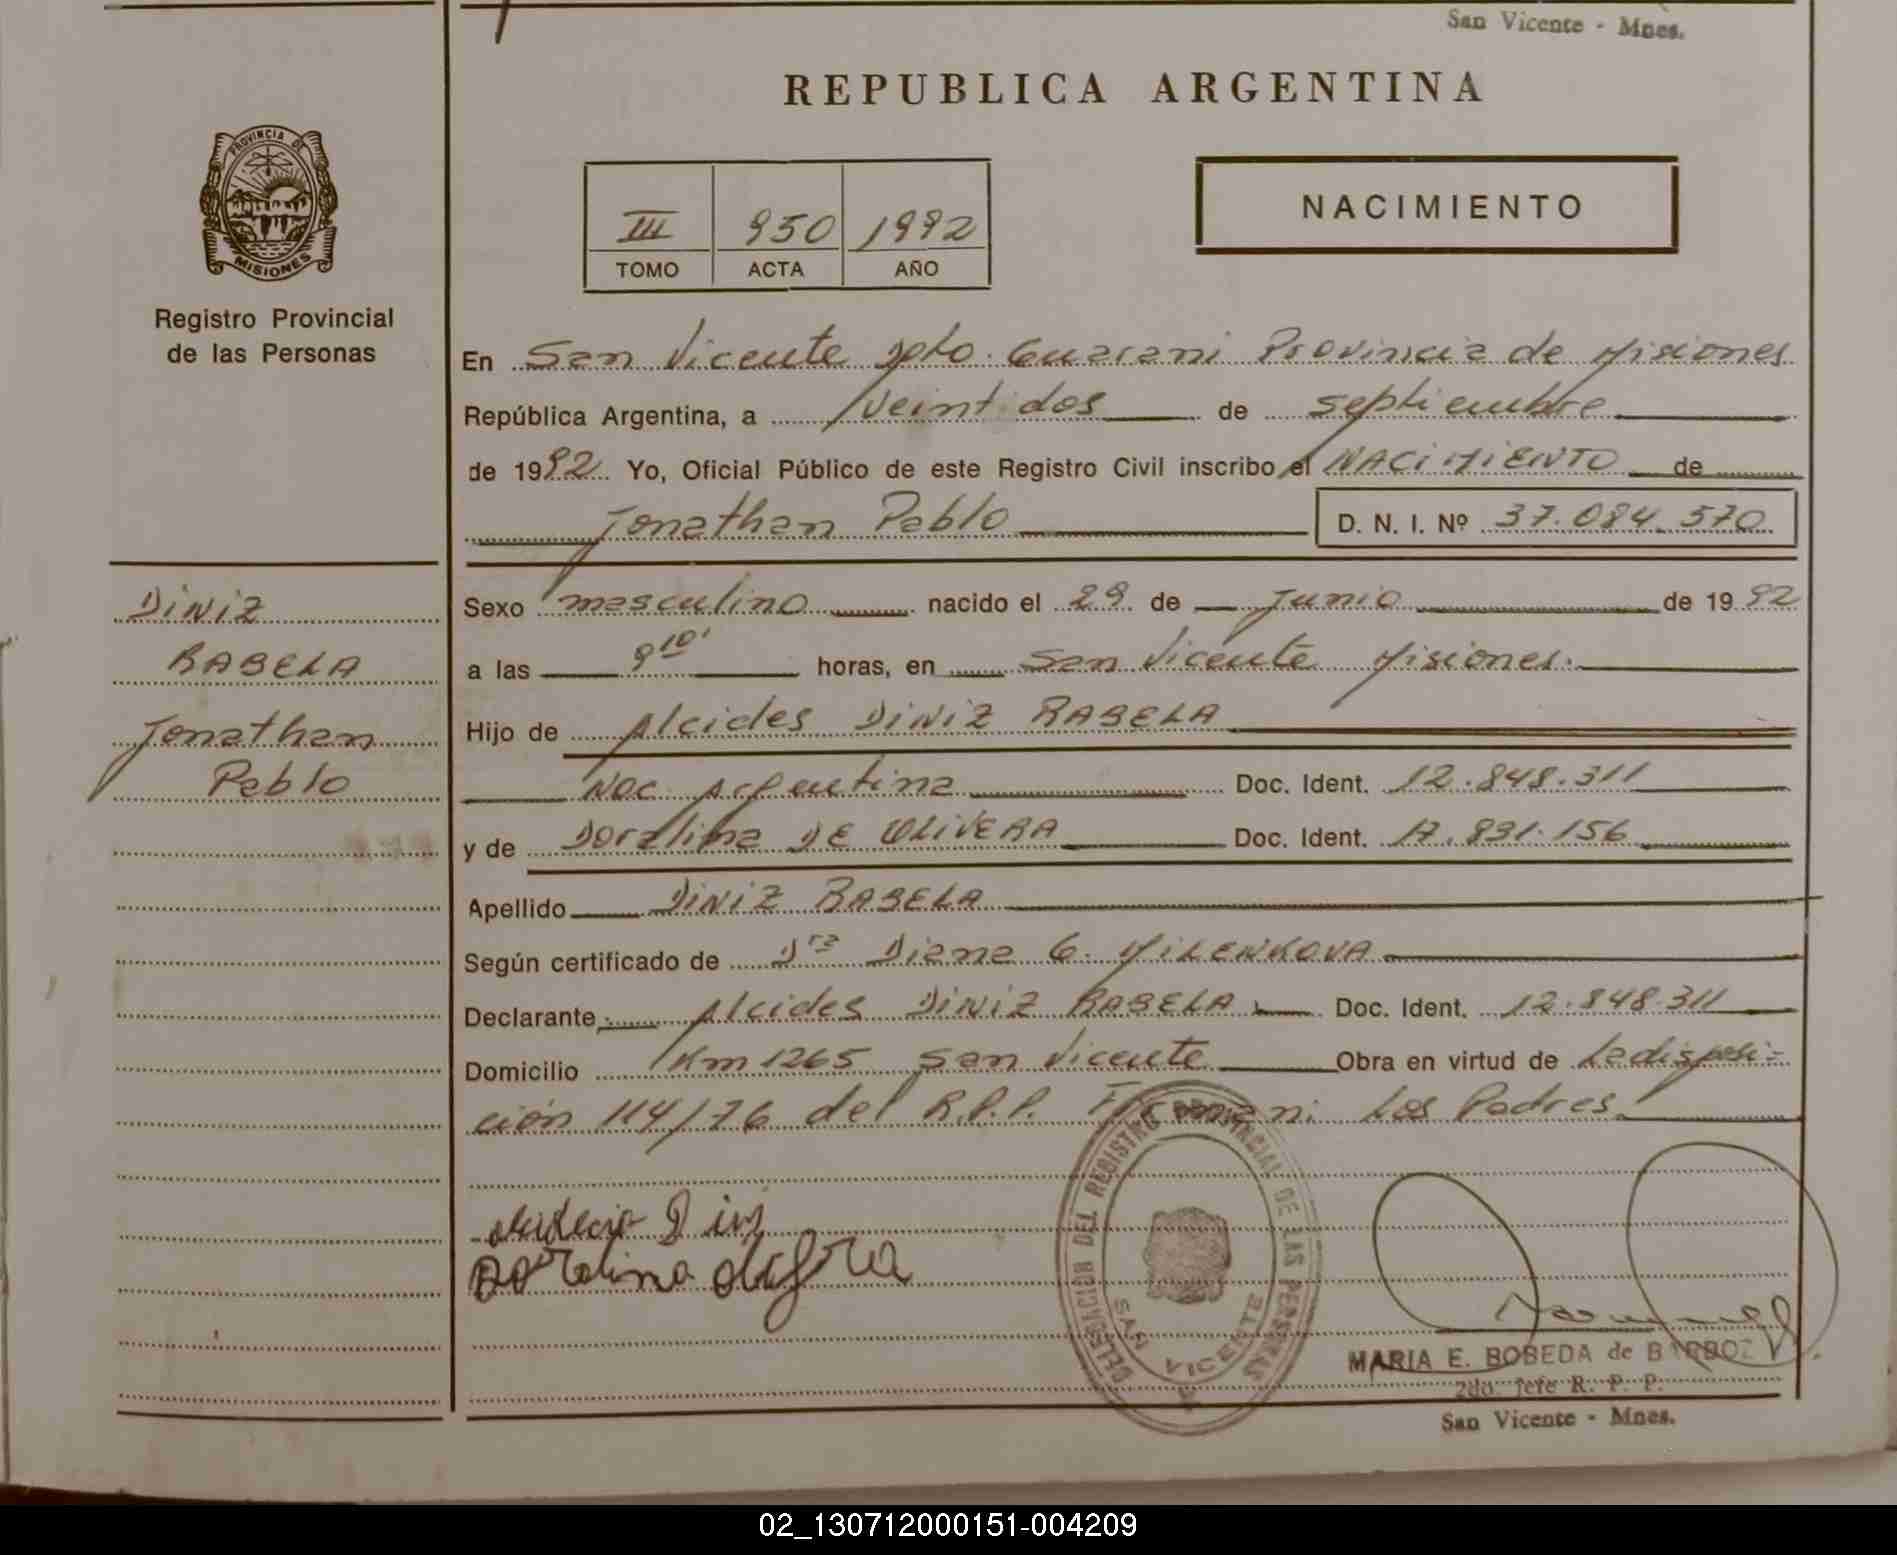 San Vicente - Mnes.
REPUBLICA ARGENTINA
PROVINCIA DE
MISIONES
Registro Provincial
de las Personas
III 950 1992
TOMO ACTA AÑO
NACIMIENTO
En San Vicente Dpto. Guarani Provincia de Misiones
República Argentina, a veintidos de septiembre
de 1992 Yo, Oficial Público de este Registro Civil inscribo el NACIMIENTO de
Jonathan Pablo D. N. I. Nº 37.084.570
DiNiZ
RABELA
Jonathan
Pablo
Sexo masculino nacido el 29 de Junio de 1992
a las 9 10' horas, en San Vicente Misiones.
Hijo de Alcides DiNiZ RABELA
Nac. Argentina Doc. Ident. 12.848.311
y de Doralina DE OLIVERA Doc. Ident. 17.831.156
Apellido DiNiZ RABELA
Según certificado de Dra Diana G. MILENKOVA
Declarante: Alcides DiNiZ RABELA Doc. Ident. 12.848.311
Domicilio Km 1265 San Vicente Obra en virtud de La disposi-
ción 114/76 del R.P.P. Firman: Los Padres
Doralina
DELEGACION DEL REGISTRO PROVINCIAL DE LAS PERSONAS
SAN VICENTE
MARIA E. BOBEDA de BARBOZ
2do. Jefe R. P. P.
San Vicente - Mnes.
02_130712000151-004209